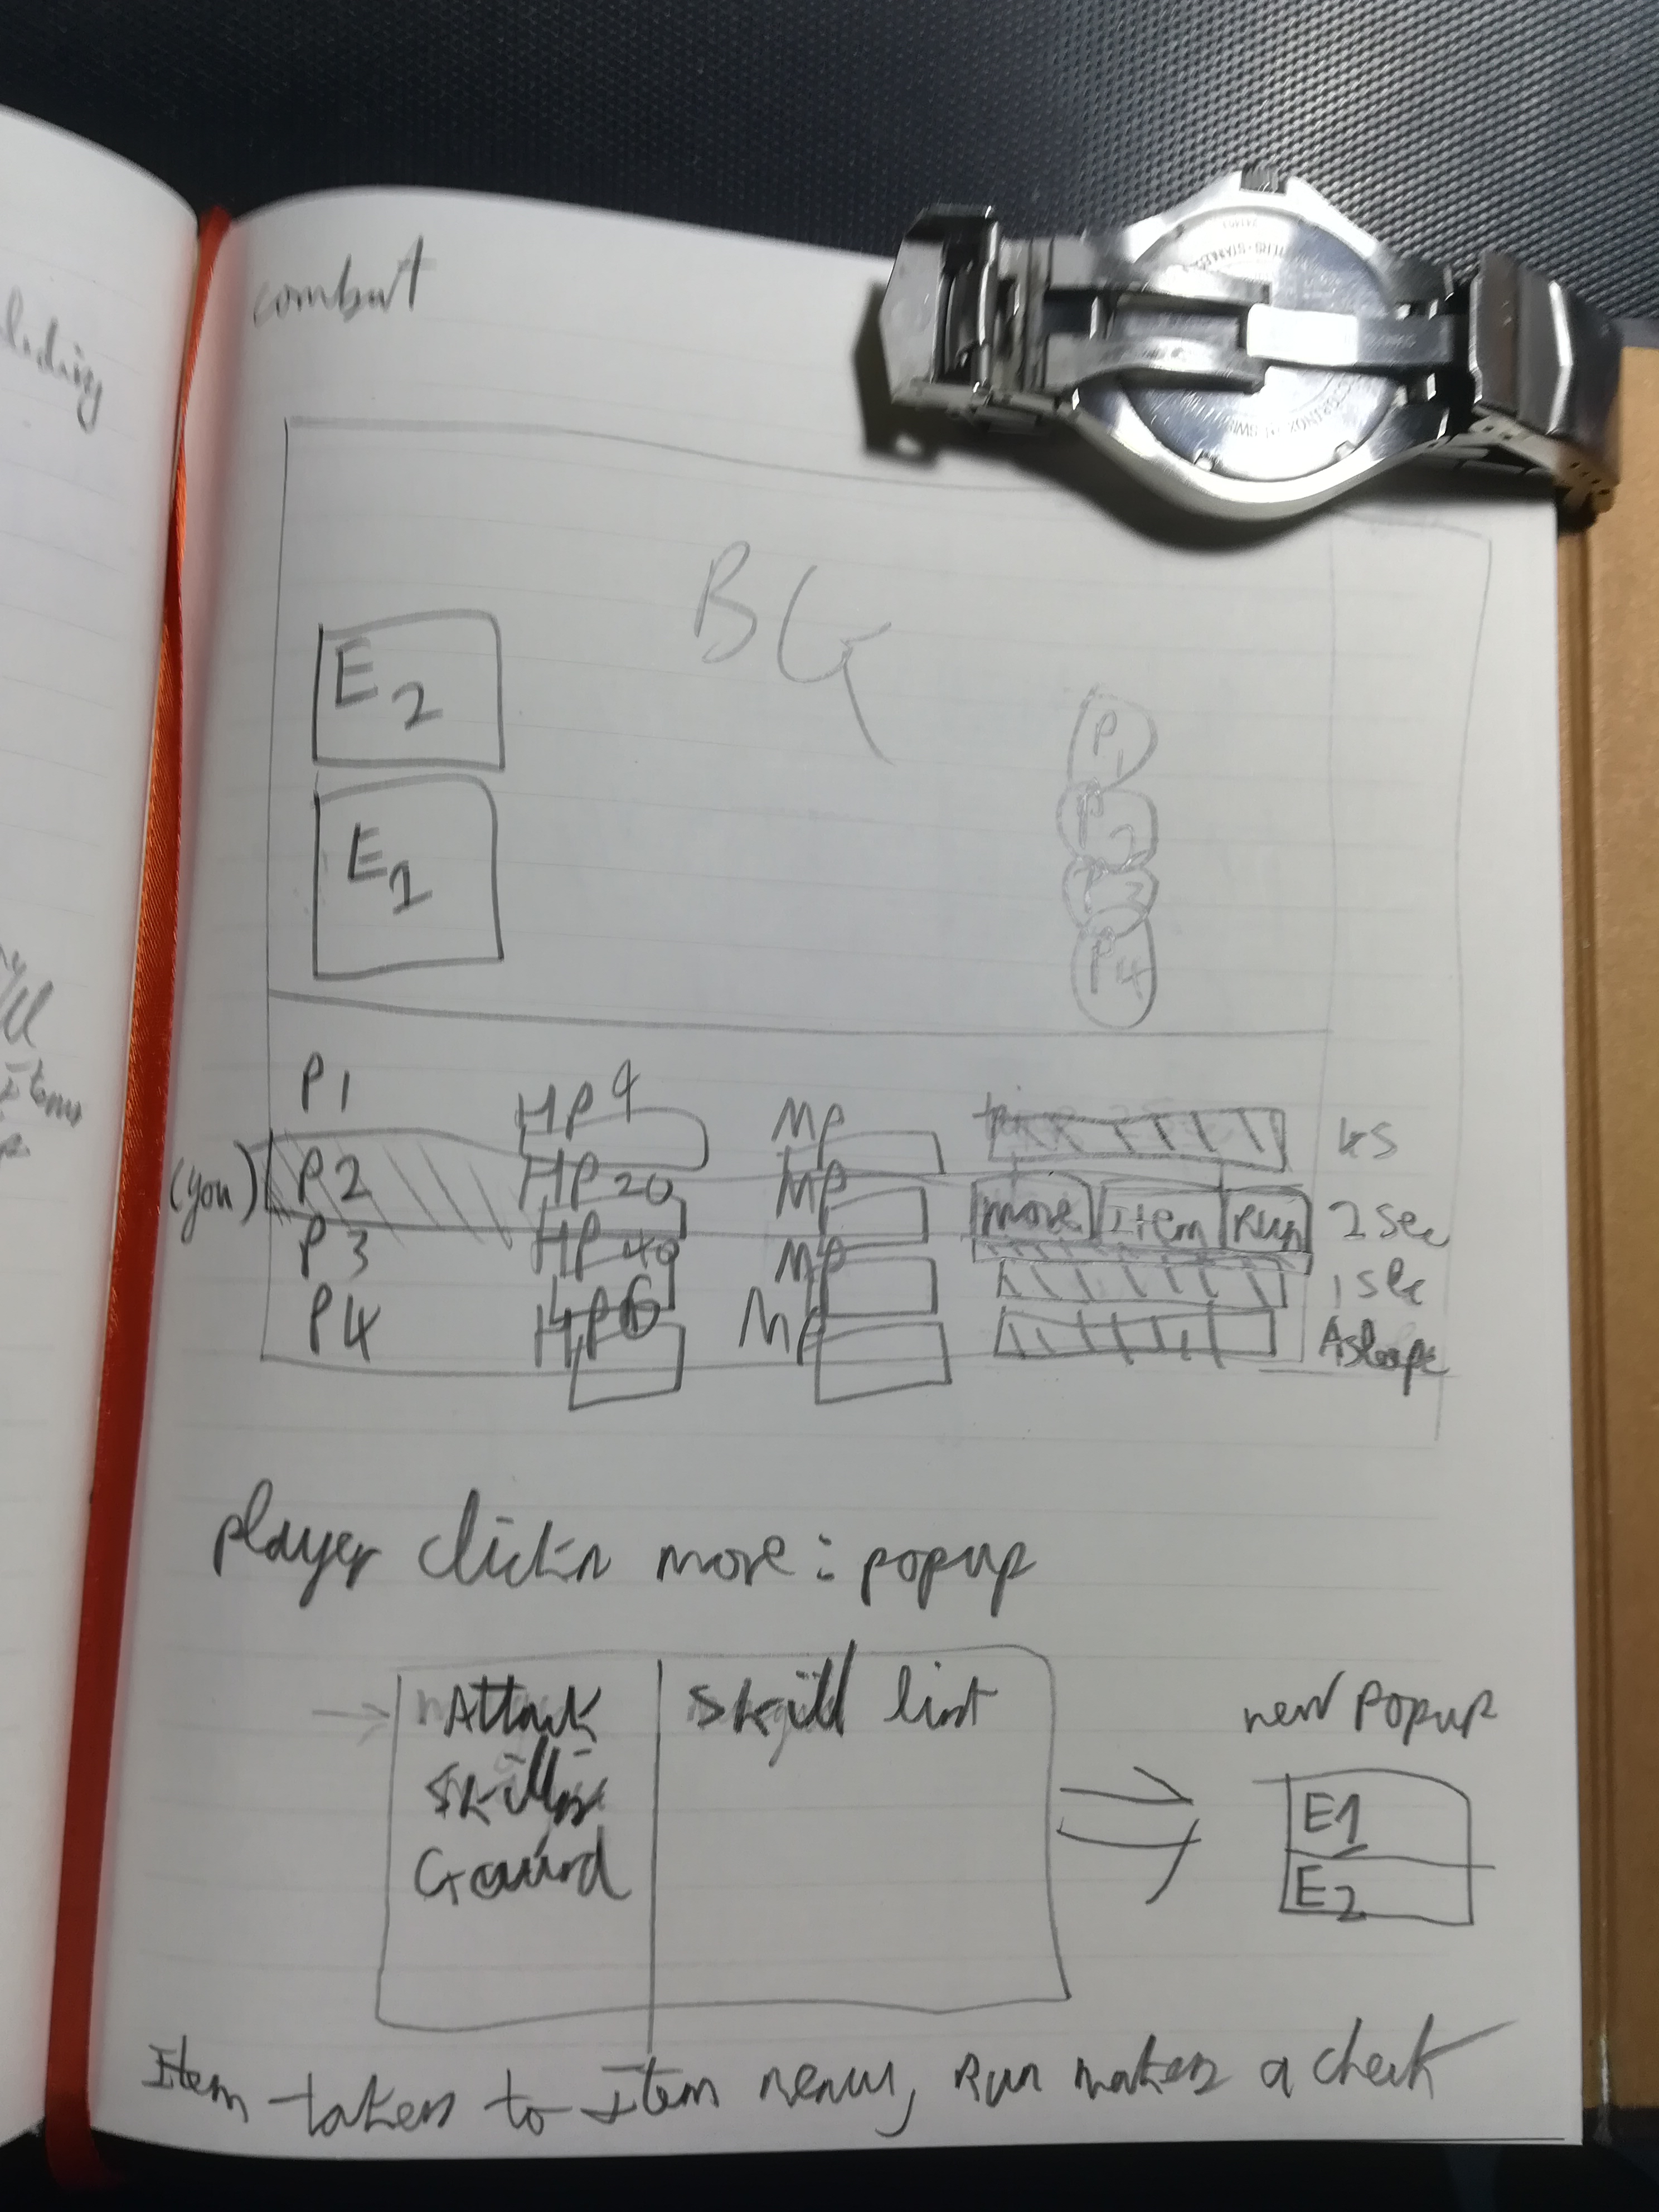 combat
BG
E2
E1
P1
P2
P3
P4
P1 HP 9 MP 4s
(you) P2 HP 20 MP move Item Run 2 sec
P3 HP 40 MP 1 sec
P4 HP MP Asleep
player clicks move : popup
Attack Skill list
Skills
Guard
new popup
E1
E2
Item takes to Item menu, Run makes a check